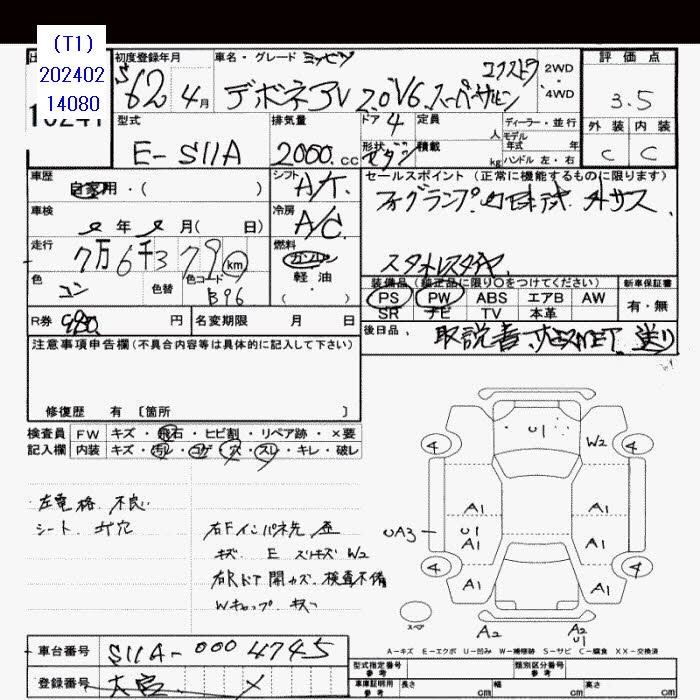 (T1)
202402
14080
10241
初度登録年月
S62 4月
車名・グレード ミツビシ
デボネアV 2.0 V6 スーパーサルーン エクストラ
2WD
・
4WD
評価点
3.5
外装 内装
C C
型式
E-S11A
排気量
2000.cc
ドア 4
形状 セダン
定員 人
積載 kg
ディーラー・並行
モデル
年式 年
ハンドル 左・右
車歴
自家用・( )
シフト
A/T.
車検
年 月( 日)
冷房
A/C.
走行
7万6千379 km
燃料
ガソリン
軽油
・
( )
色
コン
色替
色コード
B96
セールスポイント(正常に機能するものに限ります)
フォグランプ.
装備品(純正品に限り○をつけてください)
PS PW ABS エアB AW
SR ナビ TV 本革
新車保証書
有・無
R券 980. 円
名変期限 月 日
後日品、
取説書
送り
注意事項申告欄(不具合内容等は具体的に記入して下さい)
修復歴 有 〔箇所 〕
検査員 FW キズ・飛石・ヒビ割・リペア跡・×要
記入欄 内装 キズ・汚レ・コゲ・穴・スレ・キレ・破レ
左電格 不良
シート 穴
右Fインパネ先 歪
キズ E スリキズ W2
右Rドア開カズ. 検査不備
Wキャップ キズ
U1
W2
4 4
A1 A1
UA3 U1 A1 A1
4 4
A1 A1
スペア
A2 A2 U1
A-キズ E-エクボ U-凹み W-補修跡 S-サビ C-腐食 XX-交換済
車台番号 S11A-0004745
登録番号 大宮 ×
型式指定番号
参考
類別区分番号
参考
車庫証明用
参考
長さ cm 幅 cm 高さ cm